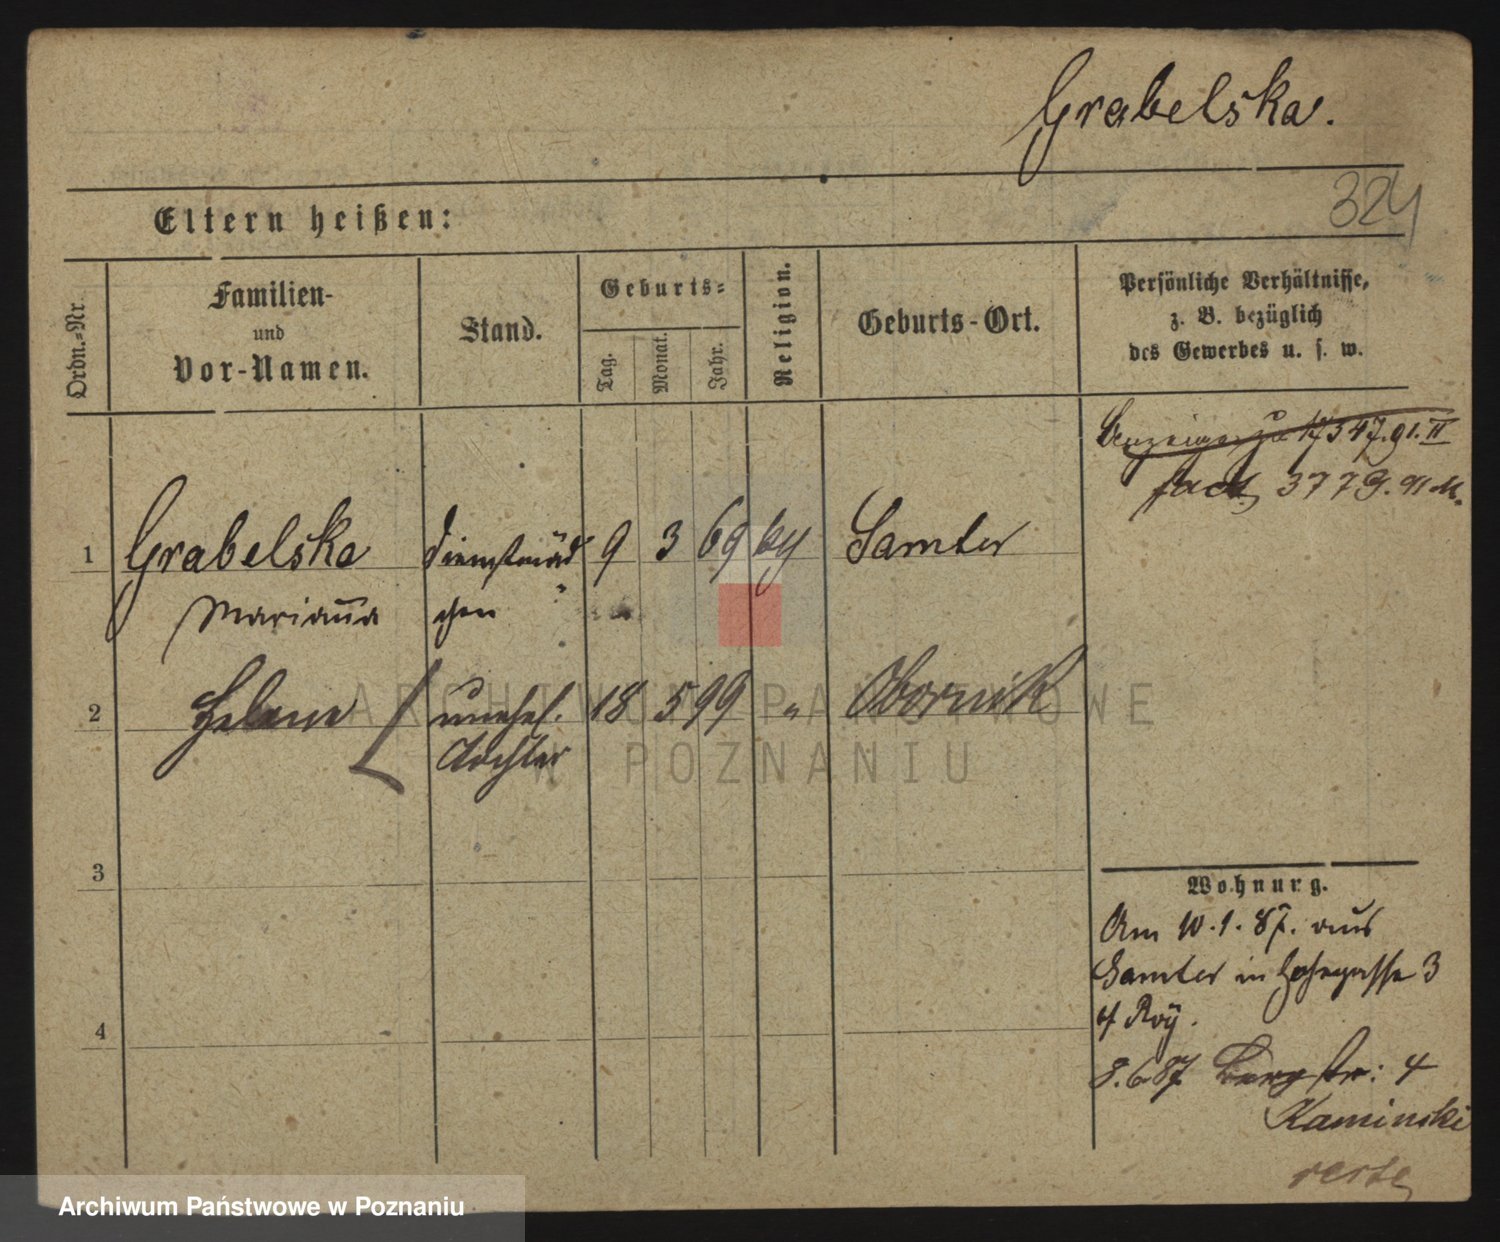 Grabelska.
324
Eltern heißen:
Ordn.-Nr.
Familien-
und
Vor-Namen.
Stand.
Geburts-
Tag.
Monat.
Jahr.
Religion.
Geburts-Ort.
Persönliche Verhältnisse,
z. B. bezüglich
des Gewerbes u. s. w.
17347.91.II
3779.91 M.
1 Grabelska Dienstmäd 9 3 69 Samter
Marianna chen
2 Helene unehel. 18 5 99 " Obornik
Tochter
3
4
Wohnung.
Am 10.1.87. aus
Samter in Hohegasse 3
8.6.87 Bergstr: 4
Kaminski
verte
ARCHIWUM PAŃSTWOWE
W POZNANIU
Archiwum Państwowe w Poznaniu